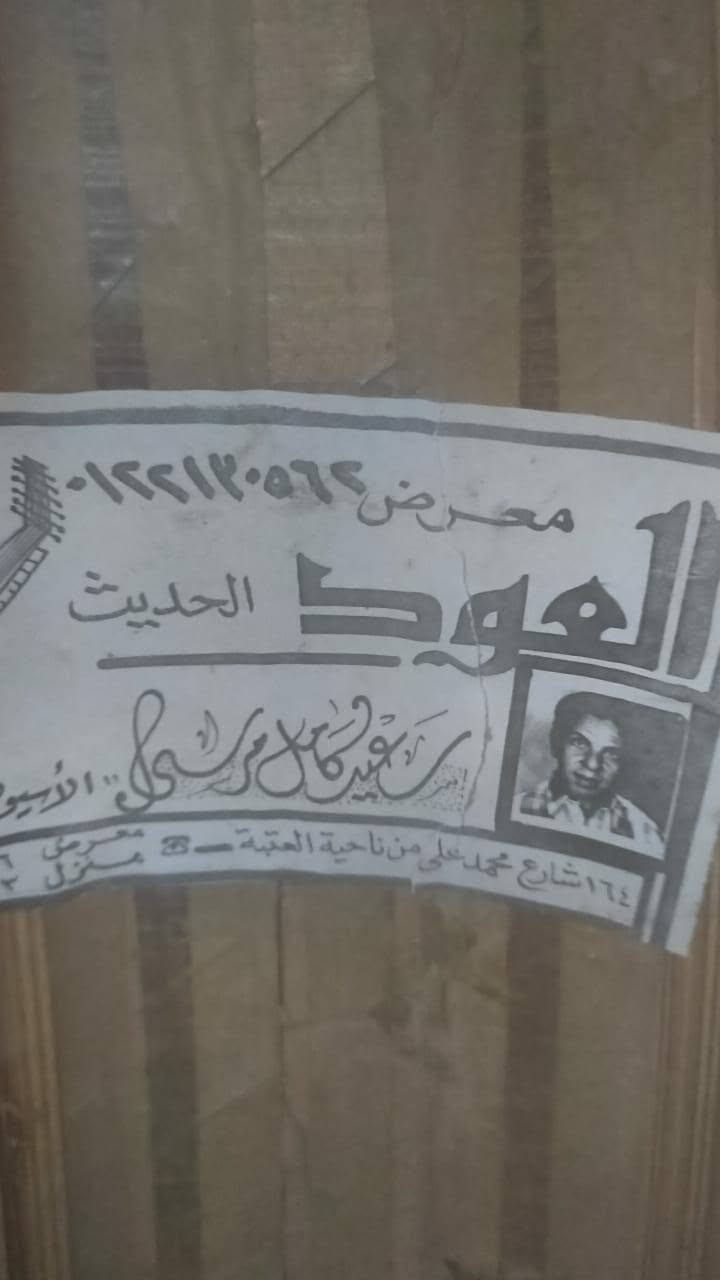 معرض ٠١٢٢١٣٠٥٦٢
العود الحديث
سعيد كامل مرسى
١٦٤ شارع محمد على من ناحية العتبة
معرض
منزل